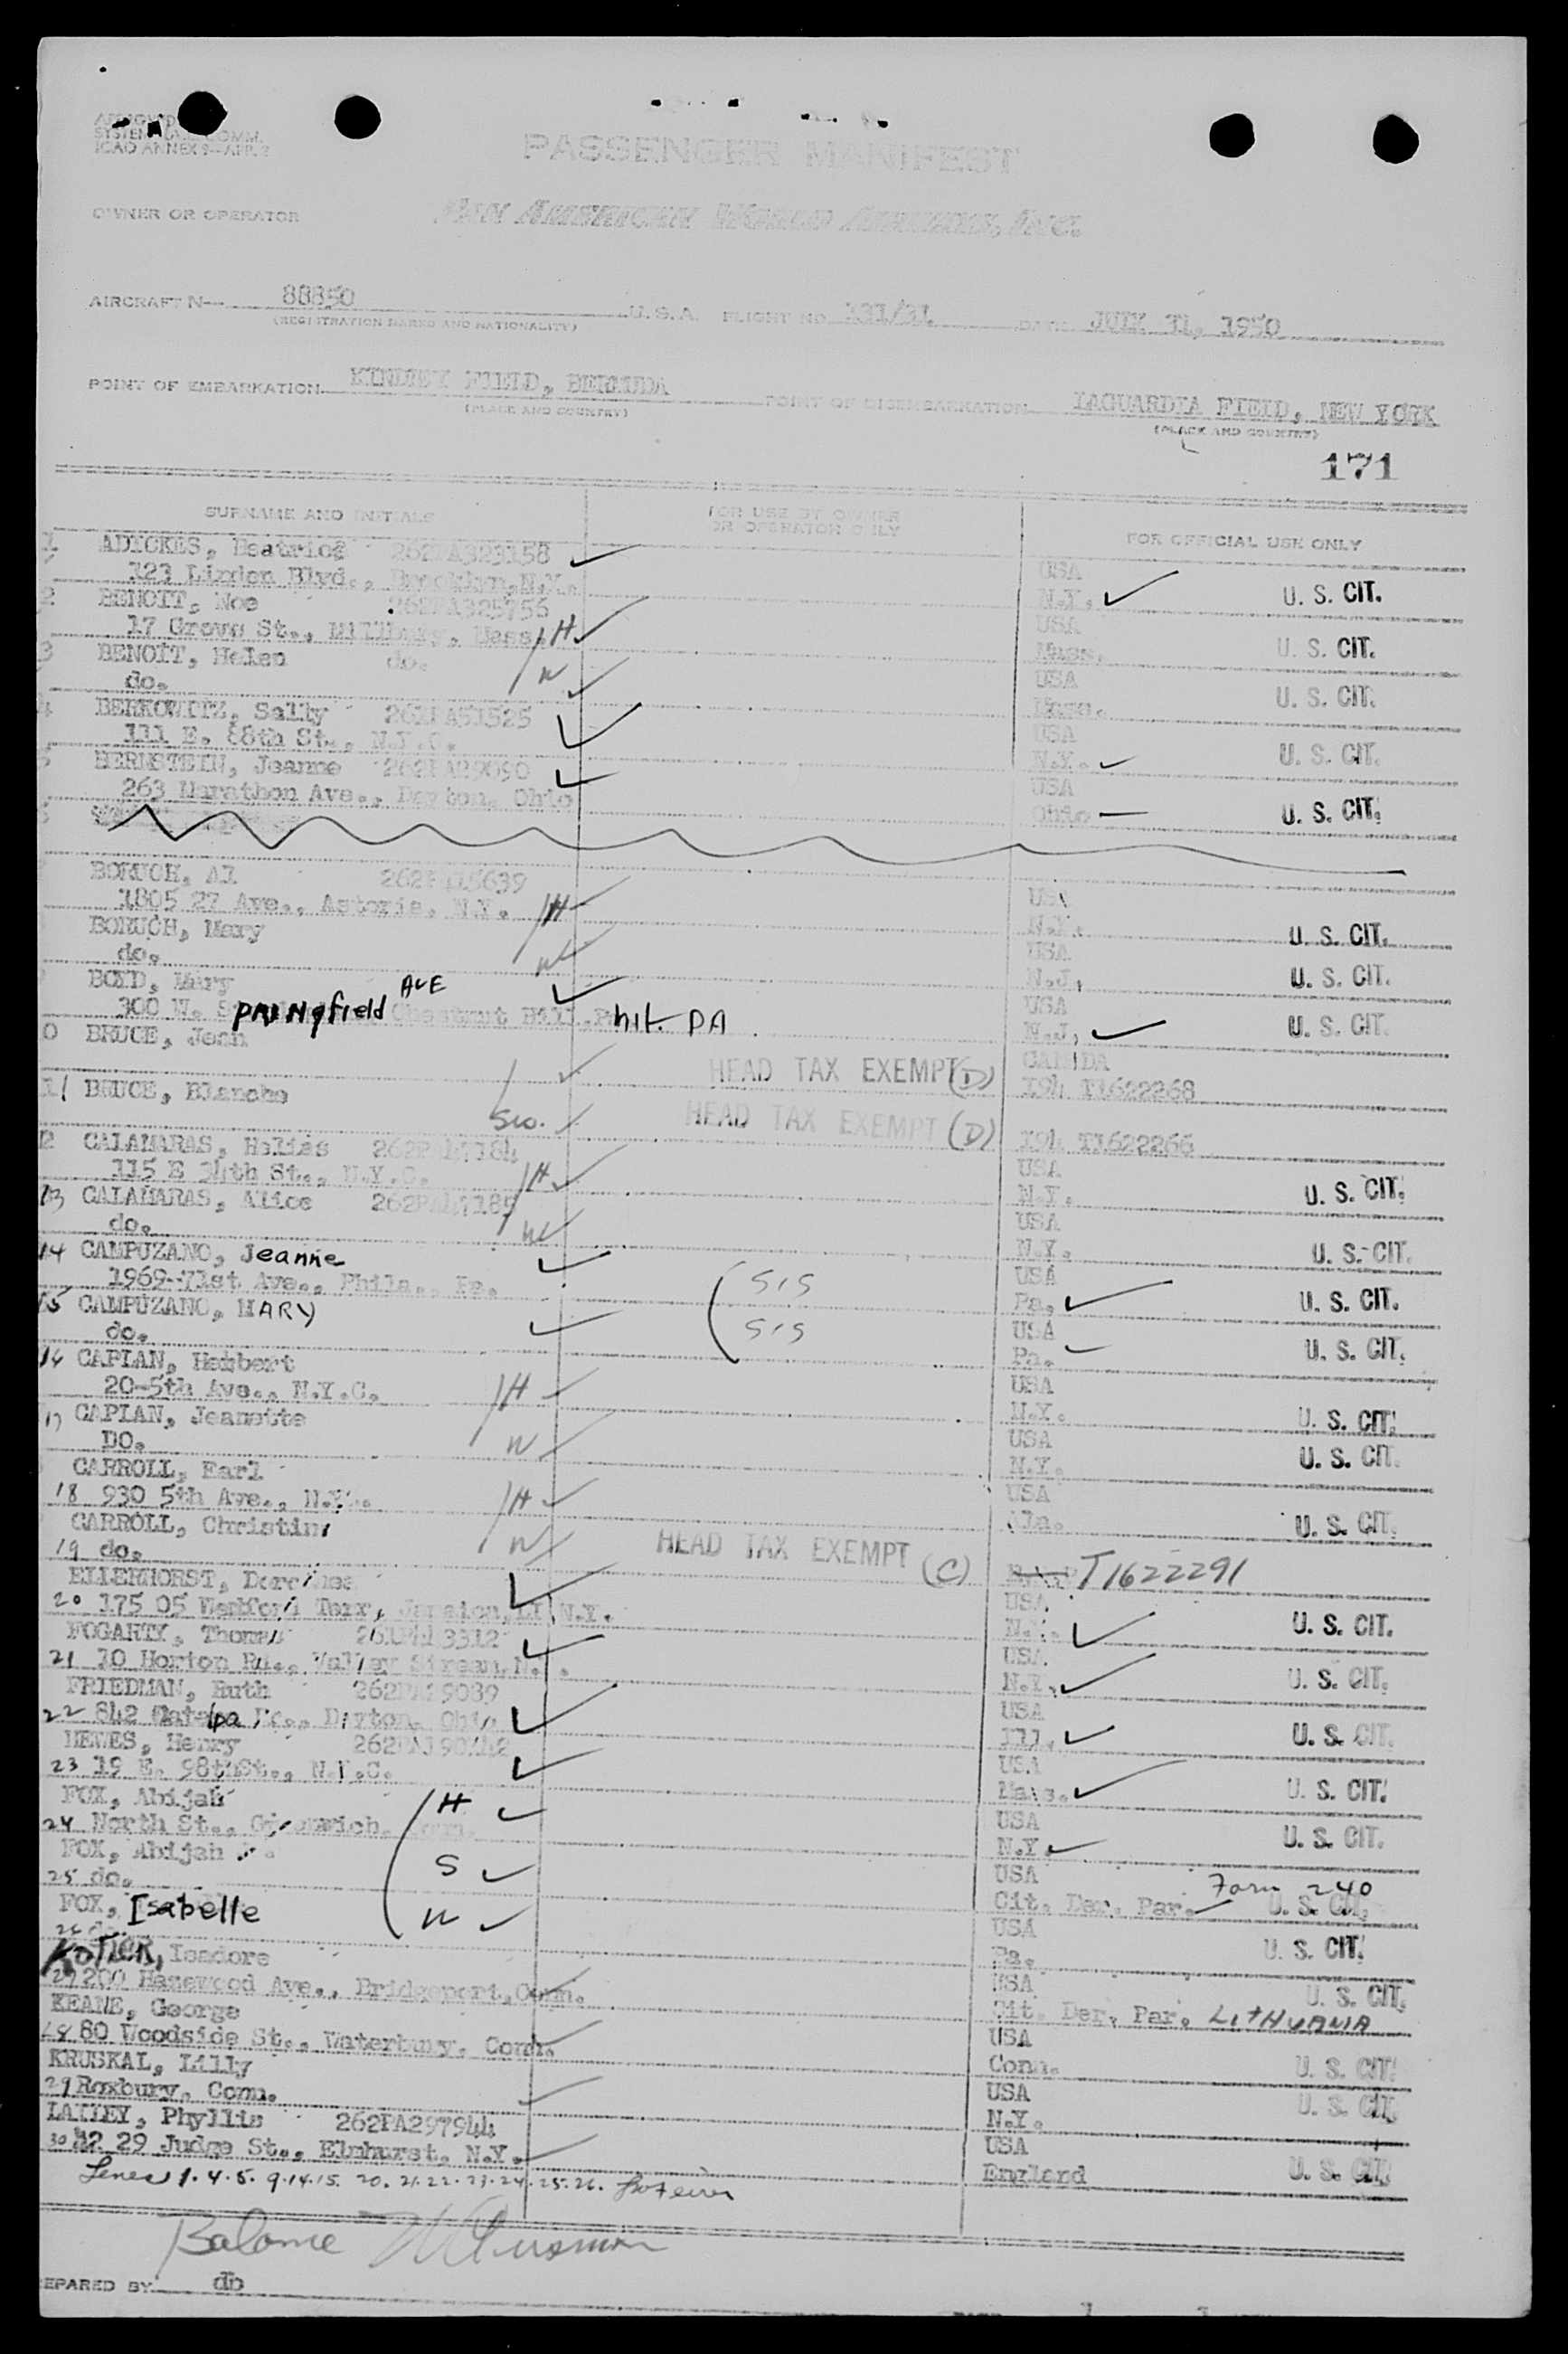 SYSTEM
ICAO ANNEX 9-APP. 2
PASSENGER MANIFEST
OWNER OR OPERATOR PAN AMERICAN WORLD AIRWAYS, INC.
AIRCRAFT N— 88850 U.S.A. FLIGHT NO. 131/31 DATE JULY 31, 1950
(REGISTRATION MARKS AND NATIONALITY)
POINT OF EMBARKATION KINDLEY FIELD, BERMUDA POINT OF DISEMBARKATION LAGUARDIA FIELD, NEW YORK
(PLACE AND COUNTRY) (PLACE AND COUNTRY)
171
SURNAME AND INITIALS FOR USE BY OWNER OR OPERATOR ONLY FOR OFFICIAL USE ONLY
1 ADICKES, Beatrice 262PA323158 USA
323 Linden Blvd., Brooklyn, N.Y. N.Y. U. S. CIT.
2 BENOIT, Noe 262PA325756 USA
17 Grove St., Millbury, Mass. H Mass. U. S. CIT.
3 BENOIT, Helen do. USA
do. W Mass. U. S. CIT.
4 BERKOWITZ, Sally 262PA51525 USA
111 E. 88th St., N.Y.C. N.Y. U. S. CIT.
5 BERNSTEIN, Jeanne USA
263 Marathon Ave., Dayton, Ohio Ohio U. S. CIT.
BORUCH, Al USA
1805 27 Ave., Astoria, N.Y. H N.Y. U. S. CIT.
BORUCH, Mary USA
do. W N.J. U. S. CIT.
BOYD, Mary AVE USA
300 W. Springfield Chestnut Hill, Pa. PA N.J. U. S. CIT.
0 BRUCE, Jean CANADA
HEAD TAX EXEMPT (D) I94 T1622268
11 BRUCE, Blanche
HEAD TAX EXEMPT (D) I94 T1622266
12 CALAMARAS, Helias USA
115 E 34th St., N.Y.C. H N.Y. U. S. CIT.
13 CALAMARAS, Alice USA
do. W N.Y. U. S. CIT.
14 CAMPUZANO, Jeanne USA
1969-71st Ave., Phila., Pa. SIS Pa. U. S. CIT.
15 CAMPUZANO, MARY USA
do. SIS Pa. U. S. CIT.
16 CAPLAN, Herbert USA
20-5th Ave., N.Y.C. H N.Y. U. S. CIT.
17 CAPLAN, Jeanette USA
DO. W N.Y. U. S. CIT.
CARROLL, Earl USA
18 930 5th Ave., N.Y. H Ala. U. S. CIT.
CARROLL, Christin
19 do. W HEAD TAX EXEMPT (C) T1622291
ELLERHORST, Dorothea USA
20 175 05 Wexford Terr, Jamaica, LI N.Y. N.Y. U. S. CIT.
FOGARTY, Thomas USA
21 10 Horton Rd., Valley Stream, N.Y. N.Y. U. S. CIT.
FRIEDMAN, Ruth 262PA19089 USA
22 842 Catalpa Dr., Dayton, Ohio Ill. U. S. CIT.
HEWES, Henry USA
23 19 E. 98thSt., N.Y.C. Mass. U. S. CIT.
FOX, Abijah H USA
24 North St., Greenwich, Conn. N.Y. U. S. CIT.
FOX, Abijah USA
25 do. S Cit. Der. Par. Form 240 U. S. CIT.
FOX, Isabelle W USA
26 do. Pa. U. S. CIT.
KOTLER, Isadore USA
27 200 Hazewood Ave., Bridgeport, Conn. Cit. Der. Par. LITHUANIA U. S. CIT.
KEANE, George USA
28 80 Woodside St., Waterbury, Conn. Conn. U. S. CIT.
KRUSKAL, Lilly USA
29 Roxbury, Conn. N.Y. U. S. CIT.
LATLEY, Phyllis 262PA297944 USA
30 42 29 Judge St., Elmhurst, N.Y. England U. S. CIT.
Lines 1. 4. 5. 9. 14. 15. 20. 21. 22. 23. 24. 25. 26.
Balance
PREPARED BY db